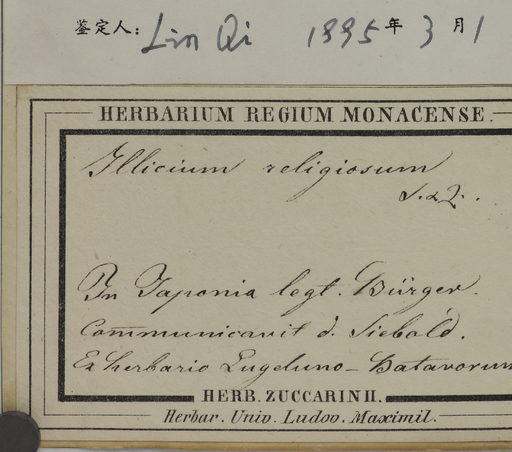 鉴定人: Lin Qi 1995年3月1
HERBARIUM REGIUM MONACENSE.
Illicium religiosum
S. & Z.
In Japonia legt. Bürger.
Communicavit d. Siebold.
Ex herbario Lugduno-Batavorum
HERB. ZUCCARINII.
Herbar. Univ. Ludov. Maximil.